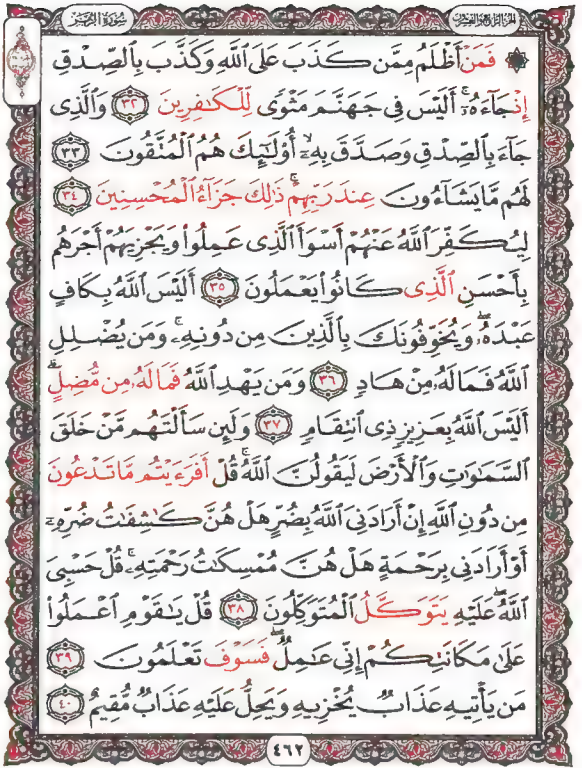 الجزء الرابع والعشرون سورة الزمر
۞ فَمَنْ أَظْلَمُ مِمَّن كَذَبَ عَلَى ٱللَّهِ وَكَذَّبَ بِٱلصِّدْقِ
إِذْ جَآءَهُۥٓ ۚ أَلَيْسَ فِى جَهَنَّمَ مَثْوًى لِّلْكَـٰفِرِينَ ٣٢ وَٱلَّذِى
جَآءَ بِٱلصِّدْقِ وَصَدَّقَ بِهِۦٓ ۙ أُو۟لَـٰٓئِكَ هُمُ ٱلْمُتَّقُونَ ٣٣
لَهُم مَّا يَشَآءُونَ عِندَ رَبِّهِمْ ۚ ذَٰلِكَ جَزَآءُ ٱلْمُحْسِنِينَ ٣٤
لِيُكَفِّرَ ٱللَّهُ عَنْهُمْ أَسْوَأَ ٱلَّذِى عَمِلُوا۟ وَيَجْزِيَهُمْ أَجْرَهُم
بِأَحْسَنِ ٱلَّذِى كَانُوا۟ يَعْمَلُونَ ٣٥ أَلَيْسَ ٱللَّهُ بِكَافٍ
عَبْدَهُۥ ۖ وَيُخَوِّفُونَكَ بِٱلَّذِينَ مِن دُونِهِۦ ۚ وَمَن يُضْلِلِ
ٱللَّهُ فَمَا لَهُۥ مِنْ هَادٍ ٣٦ وَمَن يَهْدِ ٱللَّهُ فَمَا لَهُۥ مِن مُّضِلٍّ ۗ
أَلَيْسَ ٱللَّهُ بِعَزِيزٍ ذِى ٱنتِقَامٍ ٣٧ وَلَئِن سَأَلْتَهُم مَّنْ خَلَقَ
ٱلسَّمَـٰوَٰتِ وَٱلْأَرْضَ لَيَقُولُنَّ ٱللَّهُ ۚ قُلْ أَفَرَءَيْتُم مَّا تَدْعُونَ
مِن دُونِ ٱللَّهِ إِنْ أَرَادَنِىَ ٱللَّهُ بِضُرٍّ هَلْ هُنَّ كَـٰشِفَـٰتُ ضُرِّهِۦٓ
أَوْ أَرَادَنِى بِرَحْمَةٍ هَلْ هُنَّ مُمْسِكَـٰتُ رَحْمَتِهِۦ ۚ قُلْ حَسْبِىَ
ٱللَّهُ ۖ عَلَيْهِ يَتَوَكَّلُ ٱلْمُتَوَكِّلُونَ ٣٨ قُلْ يَـٰقَوْمِ ٱعْمَلُوا۟
عَلَىٰ مَكَانَتِكُمْ إِنِّى عَـٰمِلٌ ۖ فَسَوْفَ تَعْلَمُونَ ٣٩
مَن يَأْتِيهِ عَذَابٌ يُخْزِيهِ وَيَحِلُّ عَلَيْهِ عَذَابٌ مُّقِيمٌ ٤٠
٤٦٢